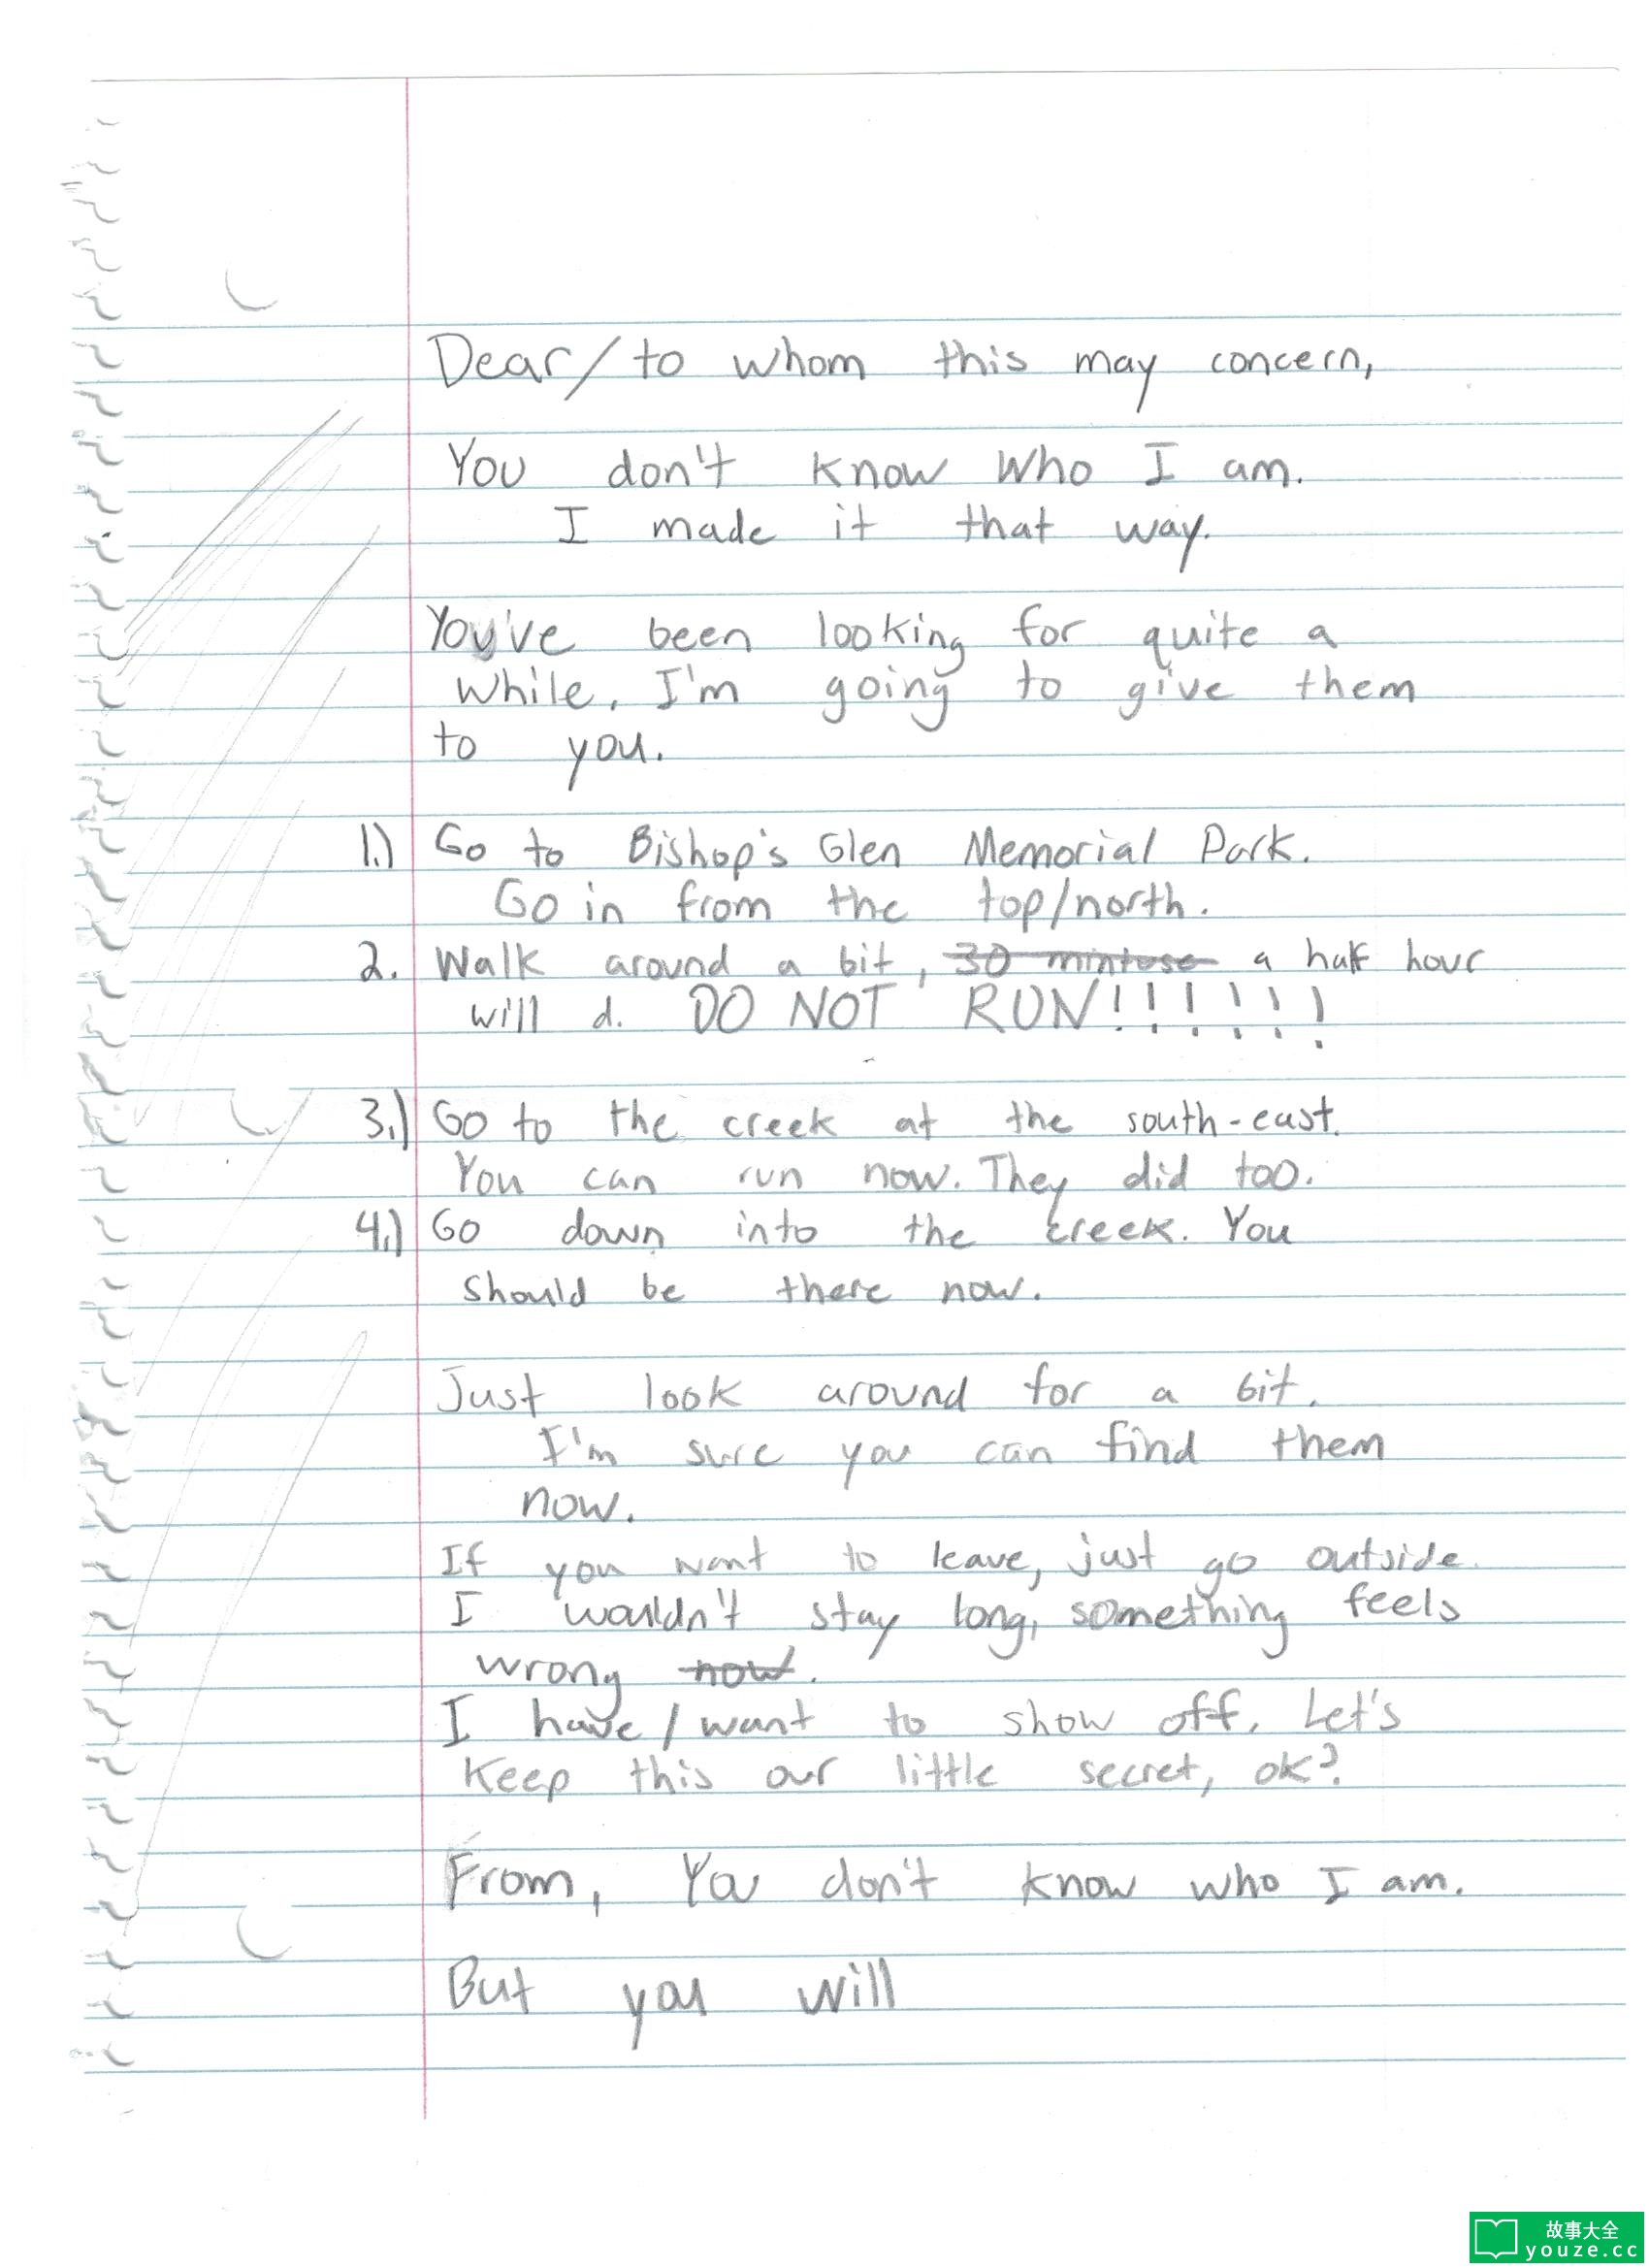 Dear/to whom this may concern,
You don't know who I am.
I made it that way.
You've been looking for quite a
while. I'm going to give them
to you.
1.) Go to Bishop's Glen Memorial Park.
Go in from the top/north.
2. Walk around a bit, 30 mintuse a half hour
will d. DO NOT RUN!!!!!!
3.) Go to the creek at the south-east.
You can run now. They did too.
4.) Go down into the creek. You
should be there now.
Just look around for a bit.
I'm sure you can find them
now.
If you want to leave, just go outside.
I wouldn't stay long, something feels
wrong now.
I have/want to show off. Let's
keep this our little secret, ok?
From, You don't know who I am.
But you will
故事大全
youze.cc